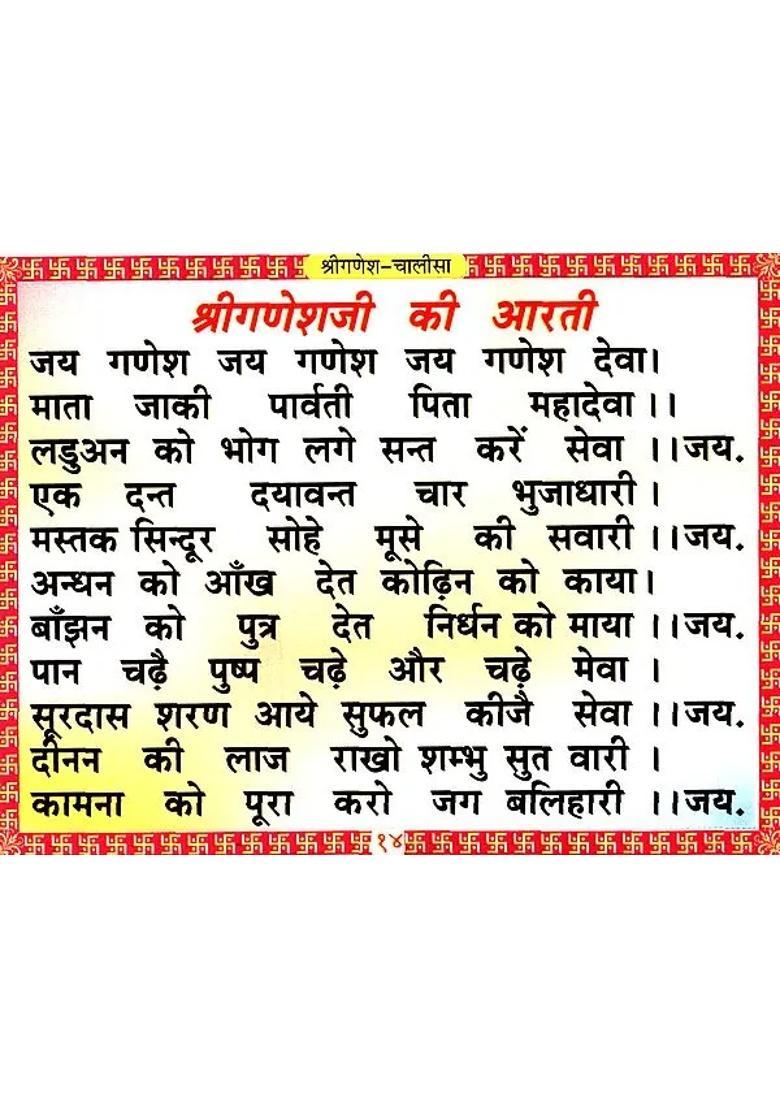 श्रीगणेश-चालीसा
श्रीगणेशजी की आरती
जय गणेश जय गणेश जय गणेश देवा।
माता जाकी पार्वती पिता महादेवा।।
लडुअन को भोग लगे सन्त करें सेवा ।।जय.
एक दन्त दयावन्त चार भुजाधारी ।
मस्तक सिन्दूर सोहे मूसे की सवारी ।।जय.
अन्धन को आँख देत कोढ़िन को काया।
बाँझन को पुत्र देत निर्धन को माया ।।जय.
पान चढ़ै पुष्प चढ़े और चढ़े मेवा ।
सूरदास शरण आये सुफल कीजै सेवा ।।जय.
दीनन की लाज राखो शम्भु सुत वारी ।
कामना को पूरा करो जग बलिहारी ।।जय.
१४